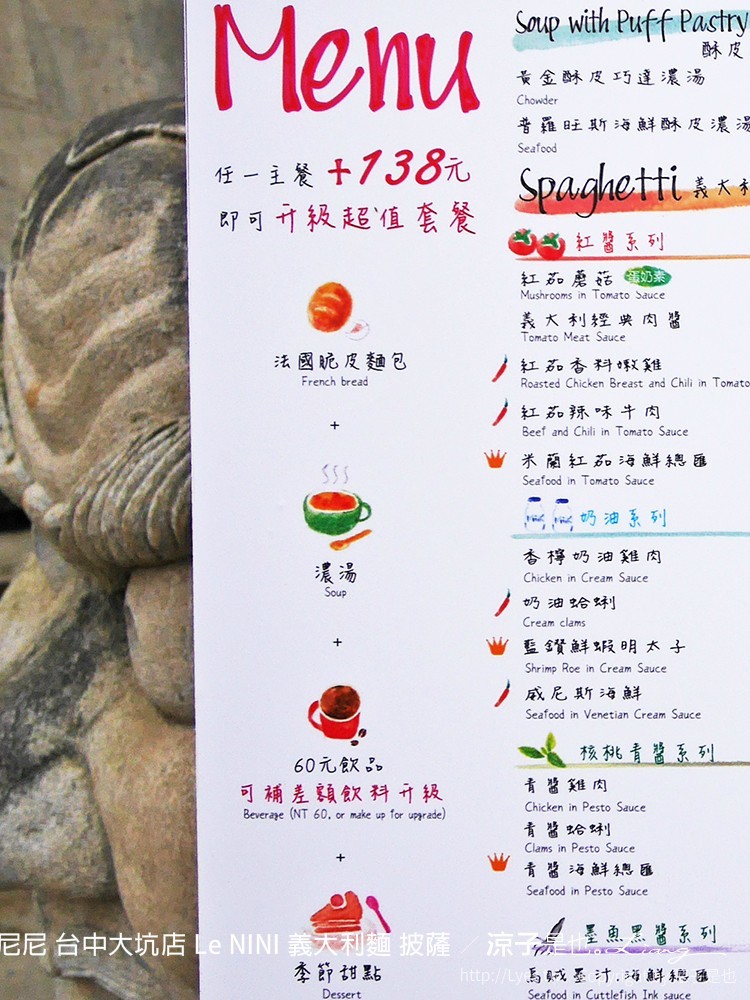 Menu
任一主餐+138元
即可升級超值套餐
法國脆皮麵包
French bread
+
濃湯
Soup
+
60元飲品
可補差額飲料升級
Beverage (NT 60, or make up for upgrade)
+
季節甜點
Dessert
Soup with Puff Pastry
酥皮
黃金酥皮巧達濃湯
Chowder
普羅旺斯海鮮酥皮濃湯
Seafood
Spaghetti 義大利
紅醬系列
紅茄蘑菇 蛋奶素
Mushrooms in Tomato Sauce
義大利經典肉醬
Tomato Meat Sauce
紅茄香料嫩雞
Roasted Chicken Breast and Chili in Tomato
紅茄辣味牛肉
Beef and Chili in Tomato Sauce
米蘭紅茄海鮮總匯
Seafood in Tomato Sauce
奶油系列
香檸奶油雞肉
Chicken in Cream Sauce
奶油蛤蜊
Cream clams
藍鑽鮮蝦明太子
Shrimp Roe in Cream Sauce
威尼斯海鮮
Seafood in Venetian Cream Sauce
核桃青醬系列
青醬雞肉
Chicken in Pesto Sauce
青醬蛤蜊
Clams in Pesto Sauce
青醬海鮮總匯
Seafood in Pesto Sauce
墨魚黑醬系列
烏賊墨汁海鮮總匯
Seafood in Cuttlefish Ink sauce
尼尼 台中大坑店 Le NINI 義大利麵 披薩 ／ 涼子是也